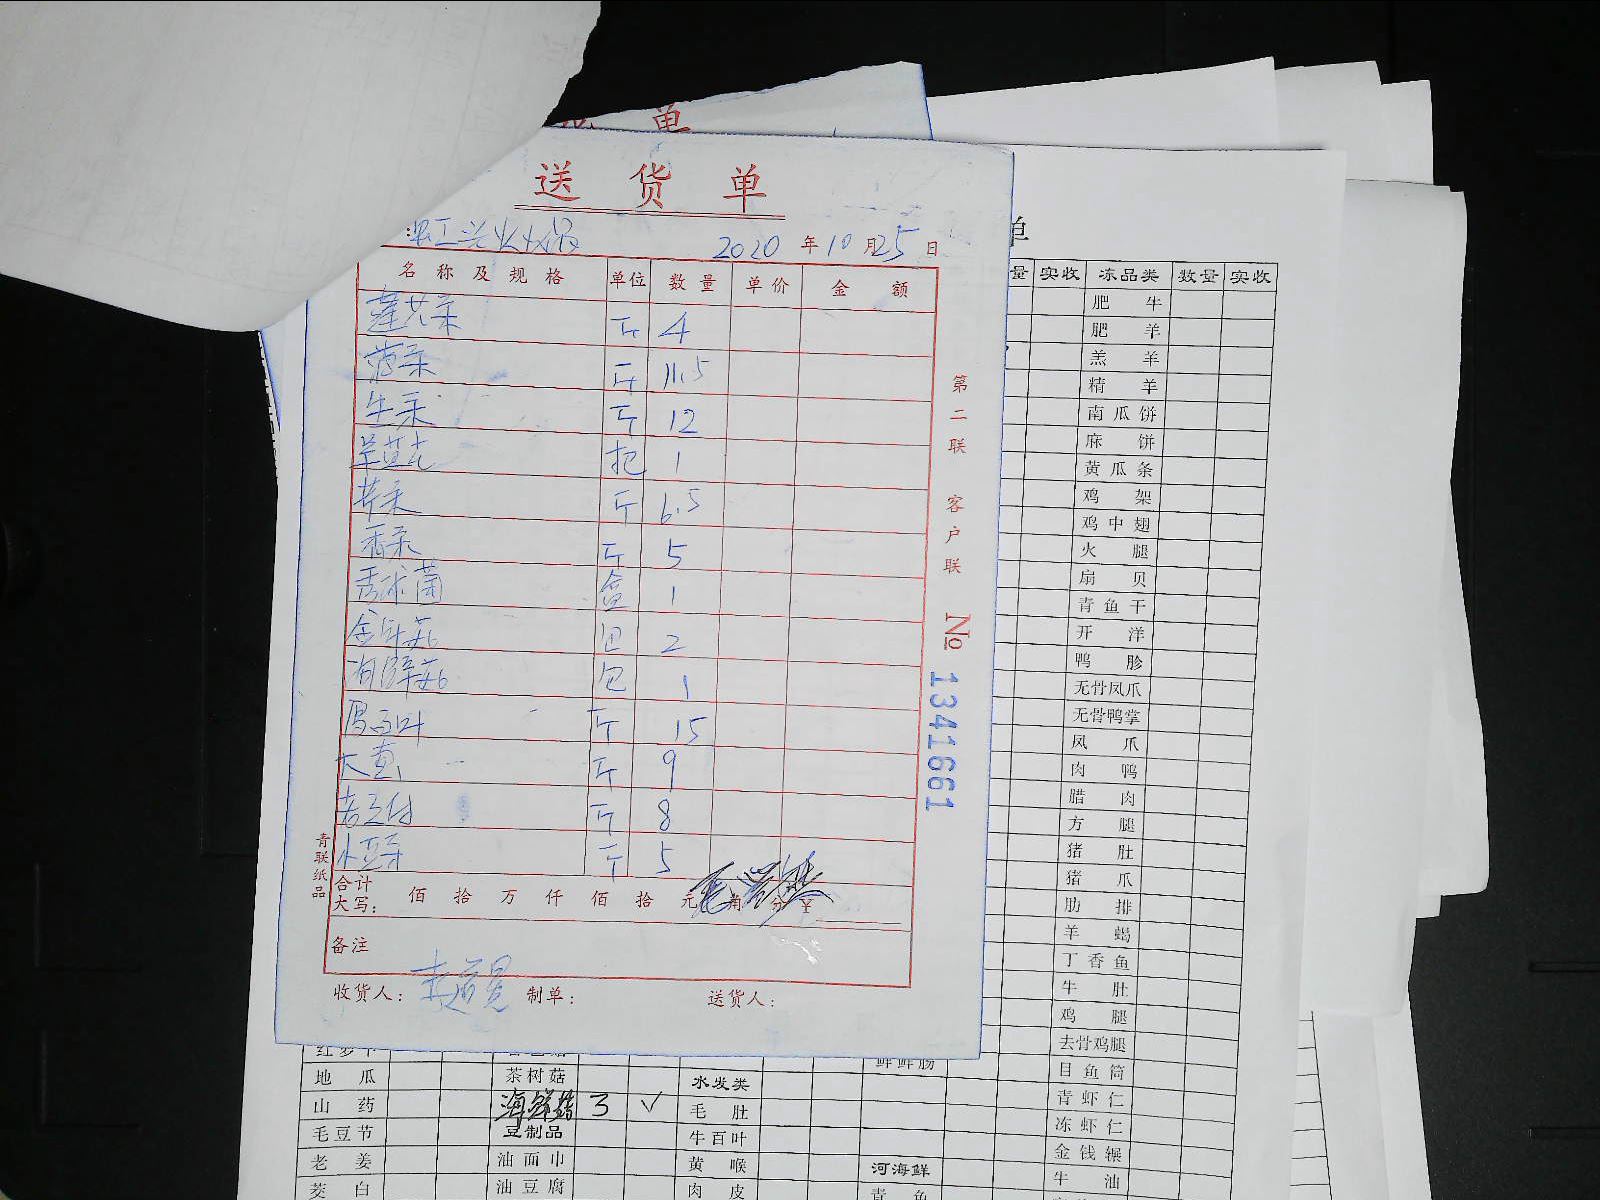 单
送 货 单
2020 年 10 月 25 日
名 称 及 规 格 单位 数 量 单 价 金 额
蓬芯菜 斤 4
菠菜 斤 11.5
生菜 斤 12
把 1
芹菜 斤 6.5
香菜 斤 5
秀珍菌 盒 1
金针菇 包 2
包 1
厚百叶 斤 15
斤 9
老豆付 斤 8
小豆芽 斤 5
合计
大写： 佰 拾 万 仟 佰 拾 元 角 分 ¥
备注
收货人： 制单： 送货人：
第二联 客户联
№ 1341661
青联纸品
单
量 实收 冻品类 数量 实收
肥 牛
肥 羊
羔 羊
精 羊
南瓜饼
麻 饼
黄瓜条
鸡 架
鸡中翅
火 腿
扇 贝
青鱼干
开 洋
鸭 胗
无骨凤爪
无骨鸭掌
凤 爪
肉 鸭
腊 肉
方 腿
猪 肚
猪 爪
肋 排
羊 蝎
丁香鱼
牛 肚
鸡 腿
去骨鸡腿
目鱼筒
青虾仁
冻虾仁
金钱辗
牛 油
地 瓜 茶树菇 水发类
山 药 海鲜菇 3 ✓ 毛 肚
毛豆节 豆制品 牛百叶
老 姜 油面巾 黄 喉 河海鲜
茭 白 油豆腐 肉 皮 青 鱼